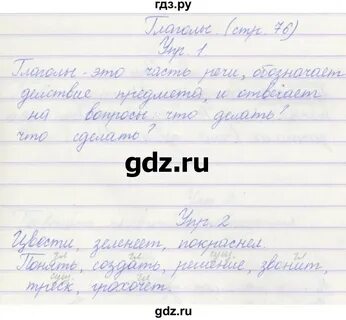 гдз.ру
Глаголы. (стр. 76)
Упр. 1
Глаголы - это часть речи, обозначает
действие предмета, и отвечает
на вопросы что делать?
что сделать?
gdz.ru
Упр. 2
Цвести, зеленеет, покраснел.
гл гл сущ гл
Понять, создать, решение, звонит,
сущ гл
треск, грохочет.
gdz.ru